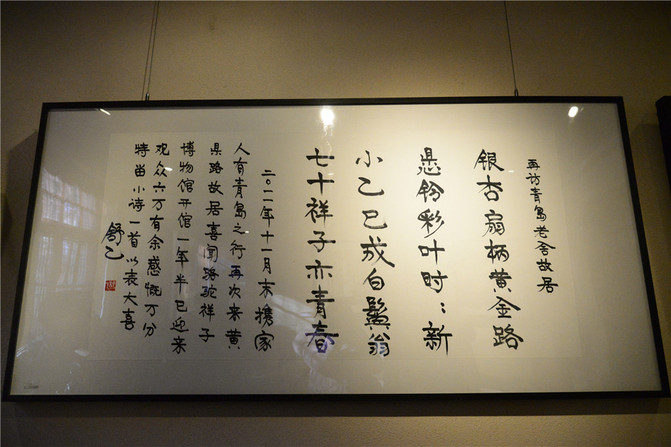 再访青岛老舍故居
银杏扇柄黄金路
悬铃彩叶时：新
小乙已成白鬓翁
七十祥子亦青春
二〇一一年十一月末携家
人有青岛之行再次来黄
県路故居喜闻骆驼祥子
博物馆开馆一年半已迎来
观众六万有余感慨万分
特留小诗一首以表大喜
舒乙